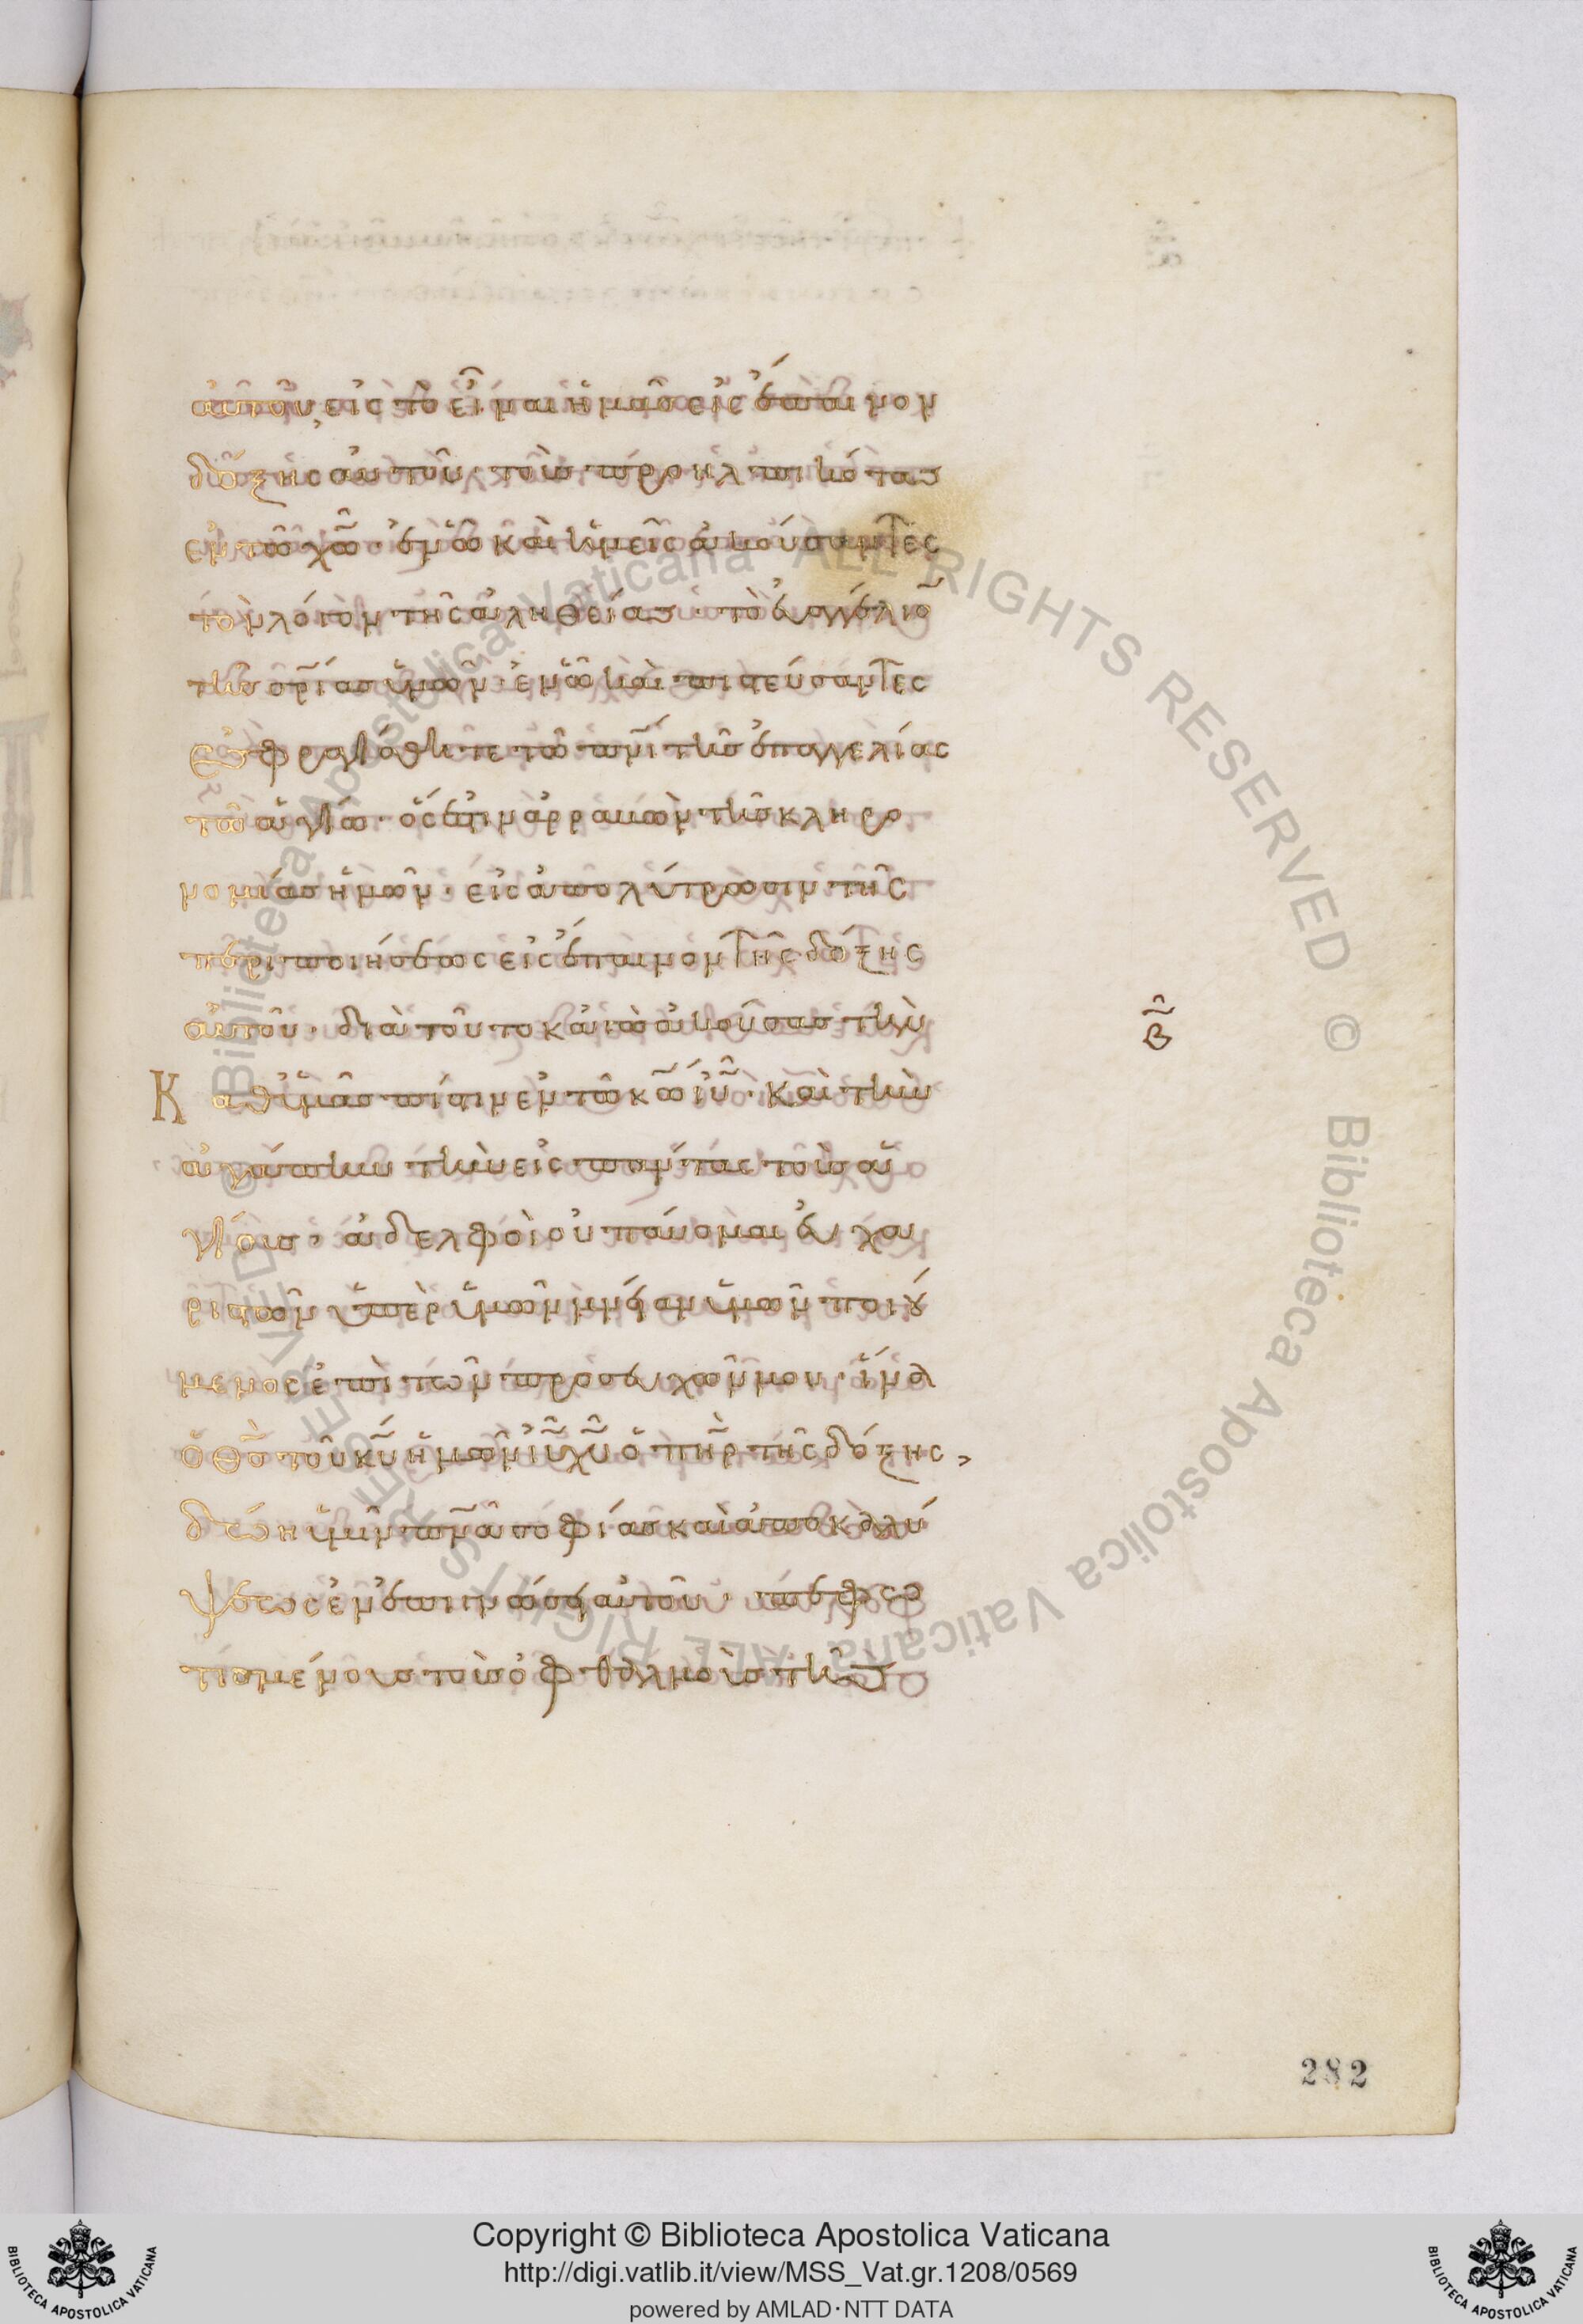 αὐτοῦ, εἰς τὸ εἶναι ἡμᾶς εἰς ἔπαινον
δόξης αὐτοῦ· τοὺς προηλπικότας
ἐν τῶ χῶ· ἐν ὧ καὶ ὑμεῖς ἀκούσαντες
τὸν λόγον τῆς ἀληθείας· τὸ εὐαγγέλιο
τῆς σρίας ὑμῶν· ἐν ὧ καὶ πιστεύσαντες
ἐσφραγίσθητε τῶ πνι τῆς ἐπαγγελίας
τῶ ἁγίω· ὅς ἐστιν ἀρραβὼν τῆς κληρο
νομίας ἡμῶν· εἰς ἀπολύτρωσιν τῆς
περιποιήσεως εἰς ἔπαινον τῆς δόξης
αὐτοῦ· διὰ τοῦτο κἀγὼ ἀκούσας τὴν
Καθ ὑμᾶς πίστιν ἐν τῶ κω ιυ· καὶ τὴν
ἀγάπην τὴν εἰς πάντας τοὺς ἁ
γίους· ἀδελφοὶ οὐ παύομαι εὐχα
ριστῶν ὑπὲρ ὑμῶν μνείαν ὑμῶν ποιού
μενος ἐπὶ τῶν προσευχῶν μου· ἵνα
ὁ θς τοῦ κυ ἡμῶν ιυ χυ ὁ πηρ τῆς δόξης,
δώη ὑμῖν πνα σοφίας καὶ ἀποκαλύ
ψεως ἐν ἐπιγνώσει αὐτοῦ· πεφω
τισμένους τοὺς ὀφθαλμοὺς τῆς
282
Copyright © Biblioteca Apostolica Vaticana
http://digi.vatlib.it/view/MSS_Vat.gr.1208/0569
powered by AMLAD·NTT DATA
© Biblioteca Apostolica Vaticana ALL RIGHTS RESERVED © Biblioteca Apostolica Vaticana ALL RIGHTS RESERVED
BIBLIOTECA APOSTOLICA VATICANA
BIBLIOTECA APOSTOLICA VATICANA